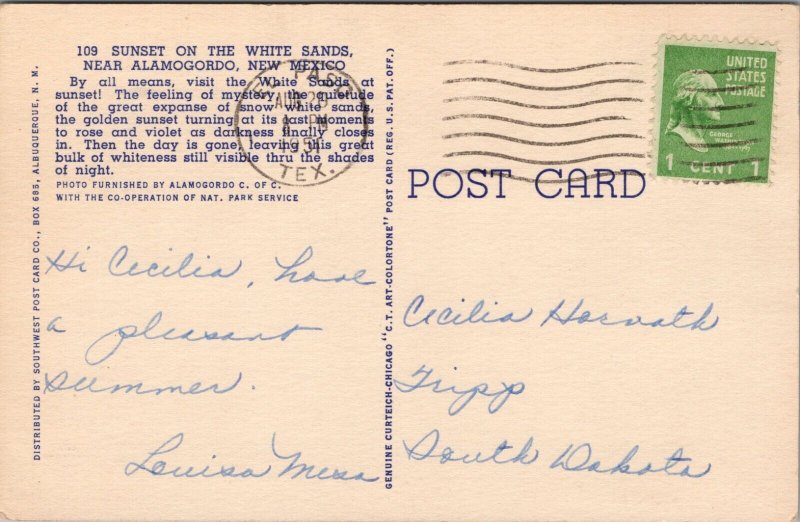 109 SUNSET ON THE WHITE SANDS,
NEAR ALAMOGORDO, NEW MEXICO
By all means, visit the White Sands at
sunset! The feeling of mystery, the quietude
of the great expanse of snow white sands,
the golden sunset turning at its last moment
to rose and violet as darkness finally closes
in. Then the day is gone, leaving this great
bulk of whiteness still visible thru the shades
of night.
PHOTO FURNISHED BY ALAMOGORDO C. OF C.
WITH THE CO-OPERATION OF NAT. PARK SERVICE
DISTRIBUTED BY SOUTHWEST POST CARD CO., BOX 685, ALBUQUERQUE, N. M.
Hi Cecilia, have
a pleasant
summer.
Louisa Mesa
GENUINE CURTEICH-CHICAGO "C.T. ART-COLORTONE" POST CARD (REG. U.S. PAT. OFF.)
EL PASO
AUG 28
PM
1951
TEX.
UNITED
STATES
POSTAGE
GEORGE
WASHINGTON
1 CENT 1
POST CARD
Cecilia Horvath
Tripp
South Dakota